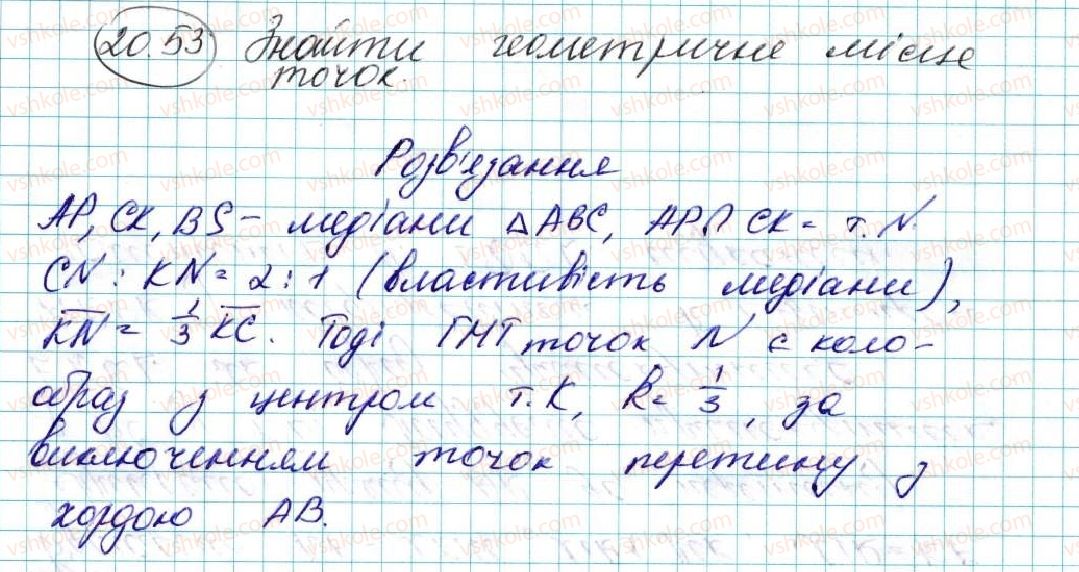 20.53 Знайти геометричне місце
точок.
Розв'язання
AP, CK, BS - медіани △ABC, AP∩CK = т. N.
CN : KN = 2 : 1 (властивість медіани),
KN = 1/3 KC. Тоді ГМТ точок N є коло-
образ з центром т. K, k = 1/3, за
виключенням точок перетину з
хордою AB.